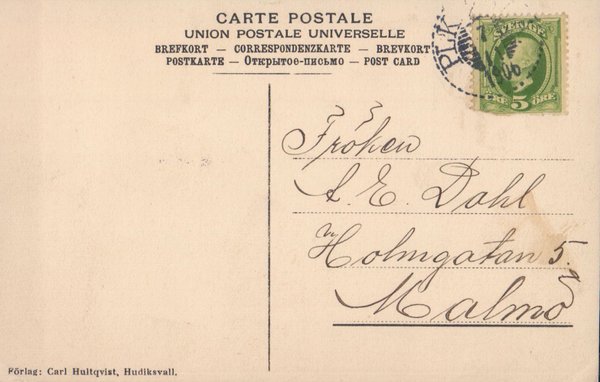 CARTE POSTALE
UNION POSTALE UNIVERSELLE
BREFKORT — CORRESPONDENZKARTE — BREVKORT
POSTKARTE — Открытое-письмо — POST CARD
PLK
SVERIGE
5 ÖRE
Fröken
A. E. Dahl
Holmgatan 5.
Malmö
Förlag: Carl Hultqvist, Hudiksvall.